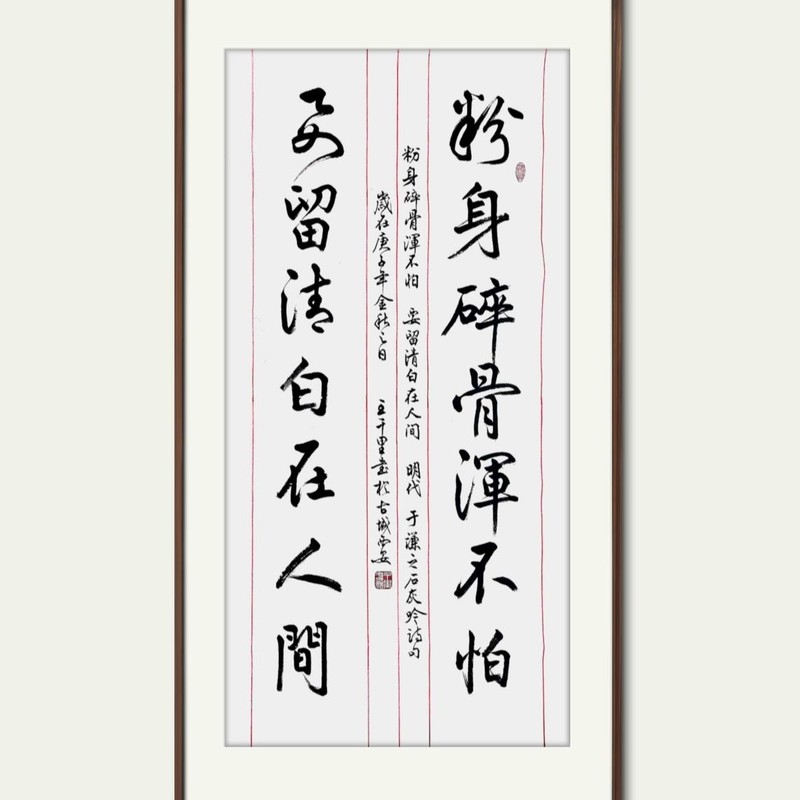 粉身碎骨渾不怕
粉身碎骨渾不怕 要留清白在人间 明代 于谦之石灰吟诗句
歲在庚子年金秋之日 王千里書於古城西安
要留清白在人間